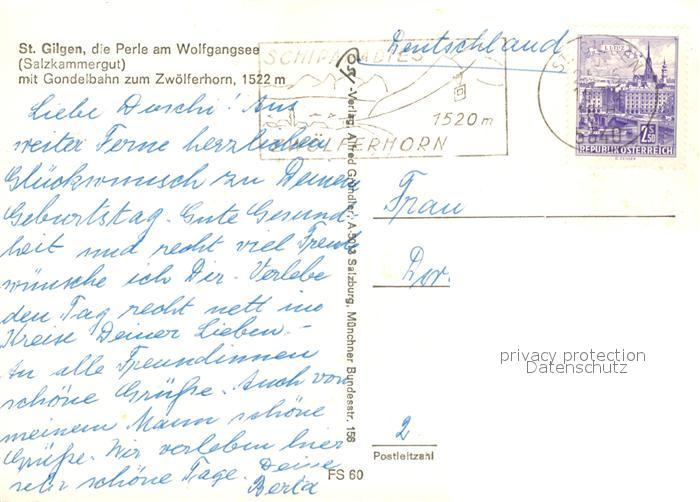 St. Gilgen, die Perle am Wolfgangsee
(Salzkammergut)
mit Gondelbahn zum Zwölferhorn, 1522 m
Liebe Duschi! Aus
weiter Ferne herzlichen
Glückwunsch zu Deinem
Geburtstag. Gute Gesund-
heit und recht viel Freude
wünsche ich Dir. Verlebe
den Tag recht nett im
Kreise Deiner Lieben.-
An alle Freundinnen
schöne Grüße. Auch von
meinem Mann schöne
Grüße. Wir verleben hier
sehr schöne Tage. Deine
Berta
FS 60
-Verlag, Alfred Gründler, A-5013 Salzburg, Münchner Bundesstr. 156
SCHIPARADIES
1520 m
ZWÖLFERHORN
Deutschland
LINZ
2 S 50
REPUBLIK ÖSTERREICH
Frau
Dor.
privacy protection
Datenschutz
2
Postleitzahl